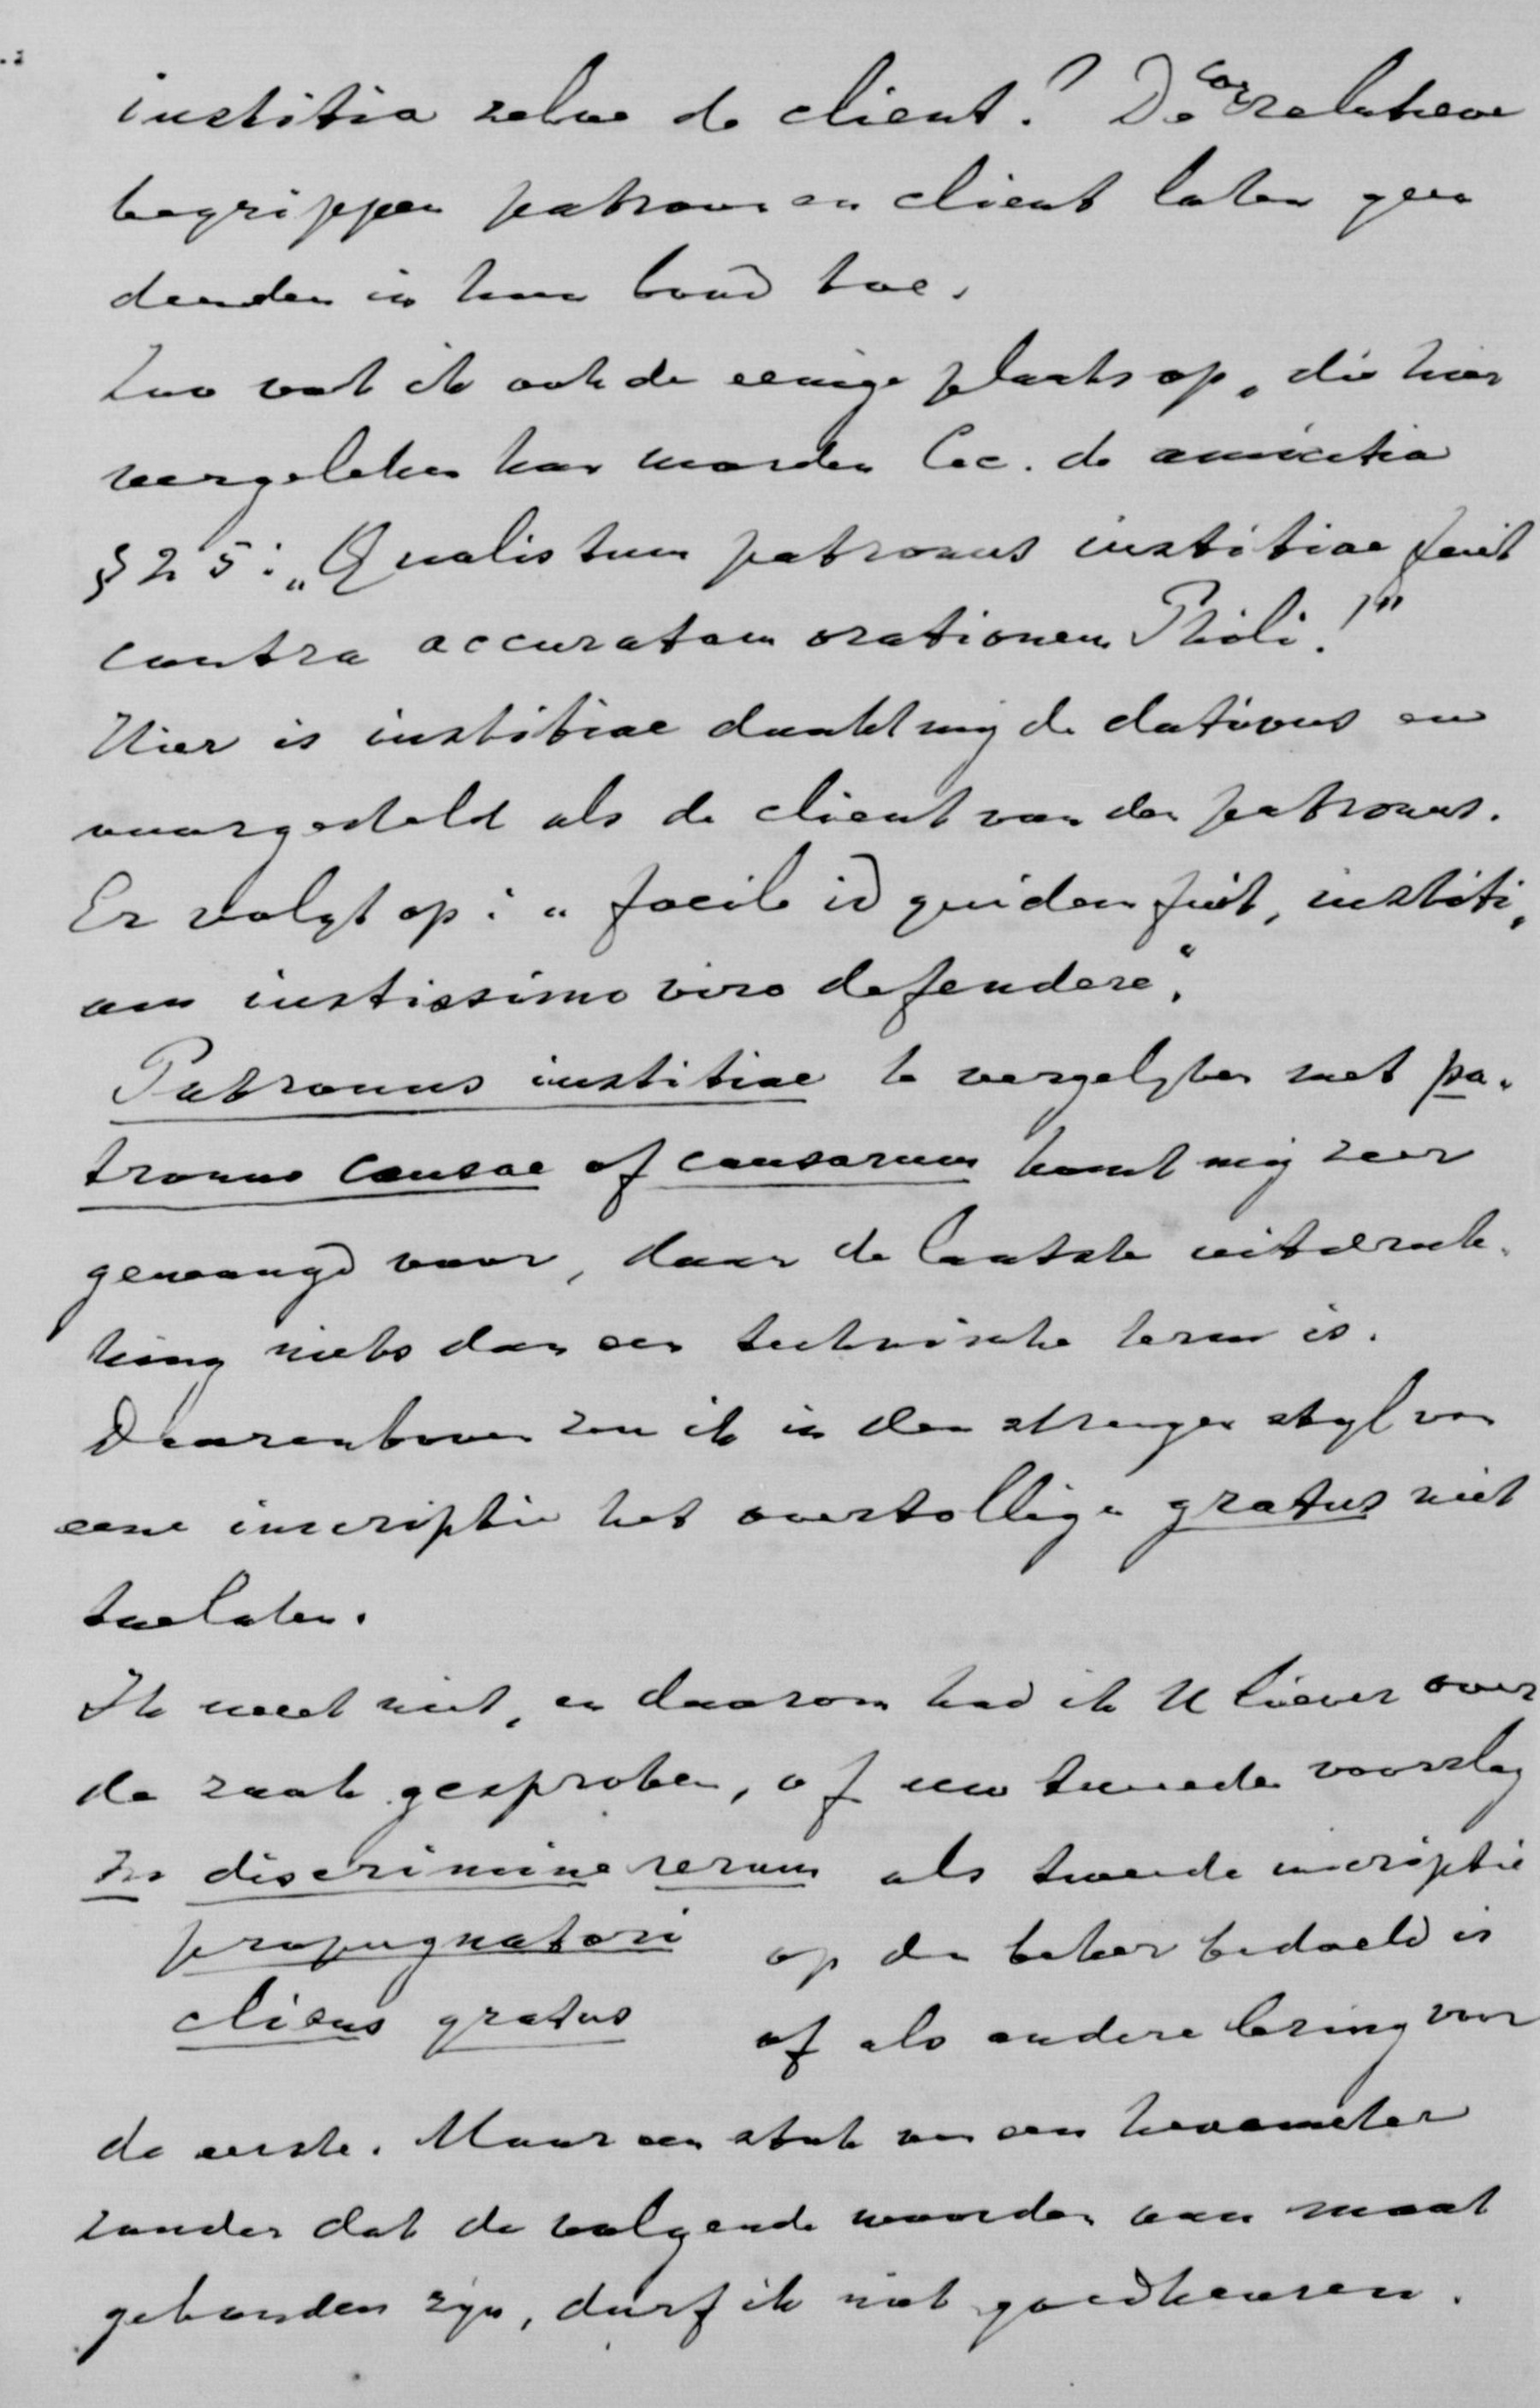 iustitia zelve de client? De correlatieve
begrippen patroon en client laten geen
derden in hun bond toe.
Zoo vat ik ook de eenige plaats op, die hier
vergeleken kan worden Cic. de amicitia
§ 25: „Qualis tum patronus iustitiae fuit
contra accuratam orationem Phili!"
Hier is iustitiae dunkt mij de dativus en
voorgesteld als de client van den patronus.
Er volgt op: „facile id quidem fuit, iustiti-
am iustissimo viro defendere".
Patronus iustitiae te vergelyken met pa-
tronus causae of causarum komt mij zeer
gewaagd voor, daar de laatste uitdruk-
king niets dan een technische term is.
Daarenboven zou ik in den strengen styl van
eene inscriptie het overtollige gratus niet
toelaten.
Ik weet niet, en daarom had ik U liever over
de zaak gesproken, of uw tweede voorslag
In discrimine rerum als tweede inscriptie
propugnatori op den beker bedoeld is
cliens gratus of als andere lezing voor
de eerste. Maar een stuk van een hexameter
zonder dat de volgende woorden aan maat
gebonden zyn, durf ik niet goedkeuren.